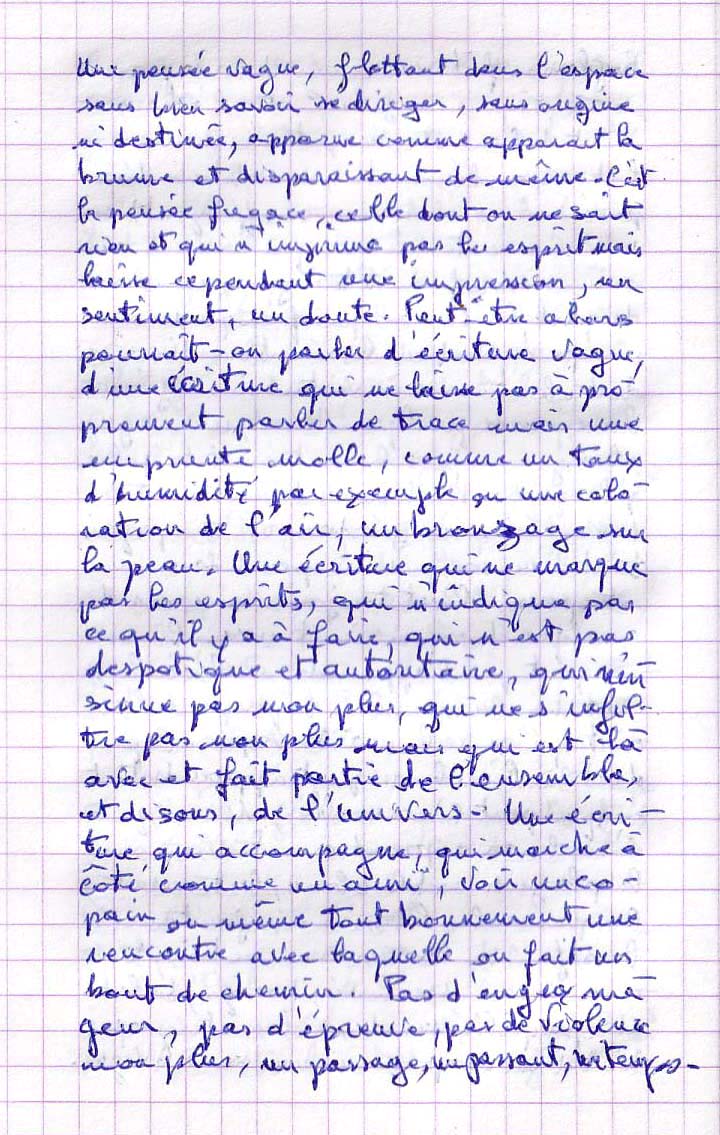 Une pensée vague, flottant dans l'espace
sans bien savoir se diriger, sans origine
ni destinée, apparue comme apparait la
brume et disparaissant de même. C'est
la pensée fugace, celle dont on ne sait
rien et qui n'imprime pas les esprit mais
laisse cependant une impression, un
sentiment, un doute. Peut-être alors
pourrait-on parler d'écriture vague,
d'une écriture qui ne laisse pas à pro-
prement parler de trace mais une
empreinte molle, comme un taux
d'humidité par exemple ou une colo-
ration de l'air, un bronzage sur
la peau. Une écriture qui ne marque
pas les esprits, qui n'indique pas
ce qu'il y a à faire, qui n'est pas
despotique et autoritaire, qui n'in-
sinue pas non plus, qui ne s'infil-
tre pas non plus mais qui est là
avec et fait partie de l'ensemble,
et disons, de l'univers. Une écri-
ture qui accompagne, qui marche à
côté, comme un ami, voir un co-
pain ou même tout bonnement une
rencontre avec laquelle on fait un
bout de chemin. Pas d'enjeu ma-
jeur, pas d'épreuve, pas de violence
non plus, un passage, un passant, un temps.